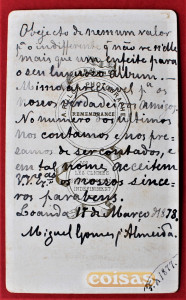 Objecto de nenum valor
pª o indifferente q não vê n'elle
mais que um enfeite para
o seu luxuoso album.
Mimo apreciavel pª os
nossos verdadeiros amigos.
No numero dos ultimos
nos contamos e nos pre-
samos de ser contados, e
em tal nome acceitem
V.V. Exªs os nossos since-
ros parabens.
Loanda 17 de Março 1878.
Miguel Gomes d'Almeida.
REMEMBRANCE
coisas